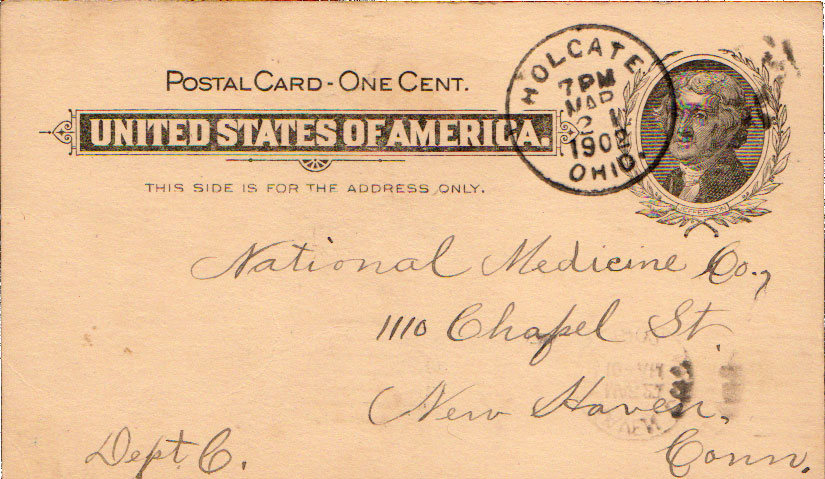 POSTAL CARD - ONE CENT.
UNITED STATES OF AMERICA.
THIS SIDE IS FOR THE ADDRESS ONLY.
HOLGATE
7 PM
MAR
2
190
OHIO.
JEFFERSON
National Medicine Co.,
1110 Chapel St.
New Haven,
Conn.
Dept C.